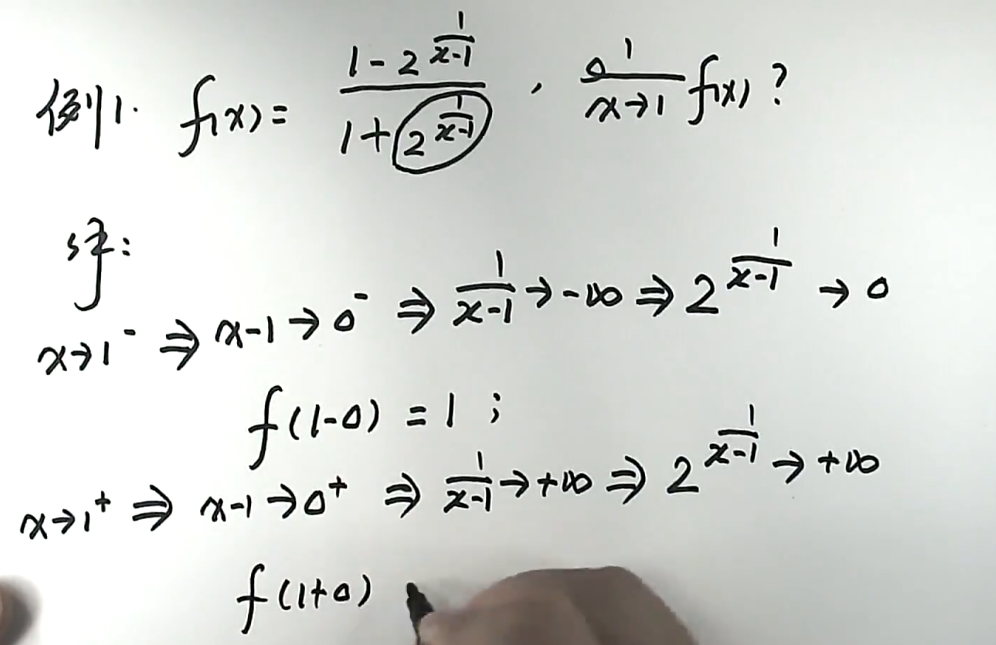 例1. f(x) = \frac{1-2^{\frac{1}{x-1}}}{1+2^{\frac{1}{x-1}}}, \frac{1}{x→1} f(x)?
解:
x→1⁻ ⇒ x-1→0⁻ ⇒ \frac{1}{x-1}→-∞ ⇒ 2^{\frac{1}{x-1}} → 0
f(1-0) = 1;
x→1⁺ ⇒ x-1→0⁺ ⇒ \frac{1}{x-1}→+∞ ⇒ 2^{\frac{1}{x-1}} → +∞
f(1+0)